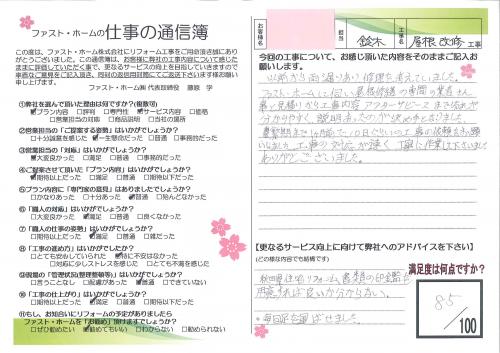 ファスト・ホームの仕事の通信簿
この度は、ファスト・ホーム株式会社にリフォーム工事をご用命頂き誠にあり
がとうございました。この通信簿は、お客様に弊社の工事内容について感じた
ままに評価していただく事で、更なるサービスの向上を目指していきますので
率直なご意見をご記入頂き、同封の返信用封筒にてご返送下さいます様お願い
申し上げます。
ファスト・ホーム㈱ 代表取締役 藤原 学
①弊社を選んで頂いた理由は何ですか？(複数可)
プラン内容 □評判 専門性 □サービス内容 □価格
□営業担当の対応 □商品説明 □当社の場所
②営業担当の「ご提案する姿勢」はいかがでしたか？
□十分誠意を感じた 一生懸命だった □普通 □事務的だった
③営業担当の「対応」はいかがでしたか？
大変良かった □満足 □普通 □事務的だった
④ご提案させて頂いた「プラン内容」はいかがでしたか？
□期待以上だった 満足 □普通 □期待以下だった
⑤プラン内容に「専門家の意見」はありましたか？
□かなりあった □十分あった 普通 □殆んどなかった
⑥「職人の対応」はいかがでしたか？
□大変良かった 満足 □普通 □良くなかった
⑦「職人の仕事の姿勢」はいかがでしたか？
□期待以上だった 満足 □普通 □雑だった
⑧「工事の進め方」はいかがでしたか？
□とても安心していられた 特に不安はなかった
□対応に少しストレスを感じた □とても不満を感じた
⑨現場の「管理状況(整理整頓等)」はいかがでしたか？
□言うことなし □配慮があった 普通 □できていない
⑩「工事の仕上がり」はいかがでしたか？
□期待以上だった 満足 □普通 □期待以下だった
⑪もし、お知合いにリフォームの予定がありましたら
ファスト・ホームを「お勧め」頂けますでしょうか？
□ぜひ勧めたい 勧めてもいい □わからない □勧められない
お客様名
担当
鈴木
工事名
屋根改修工事
今回の工事について、お感じ頂いた内容をそのままご記入お
願いします。
以前から雨漏りあり修理を考えていました。
ファストホームという
事、見積りから工事内容 アフターサービスまで
分かりやすく、説明
しました。工事の対応が速く
ありがとうございました。
【更なるサービス向上に向けて弊社へのアドバイスを下さい】
(どの様な内容でも結構です)
秋田県住宅リフォーム
すれば良いか分からない。
満足度は何点ですか？
85
／100